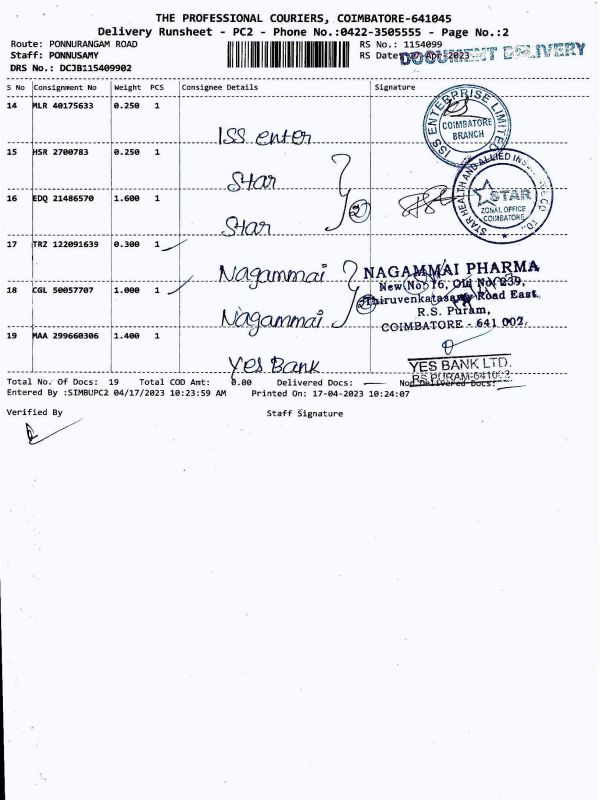 THE PROFESSIONAL COURIERS, COIMBATORE-641045
Delivery Runsheet - PC2 - Phone No.:0422-3505555 - Page No.:2
Route: PONNURANGAM ROAD
Staff: PONNUSAMY
DRS No.: DCJB115409902
RS No.: 1154099
RS Date: 17 Apr 2023
DOCUMENT DELIVERY
S No Consignment No Weight PCS Consignee Details Signature
14 MLR 40175633 0.250 1
ISS enter
ISS ENTERPRISE LIMITED
COIMBATORE
BRANCH
15 HSR 2700783 0.250 1
Star
16 EDQ 21486570 1.600 1
Star
2
STAR HEALTH AND ALLIED INS CO
STAR
ZONAL OFFICE
COIMBATORE
17 TRZ 122091639 0.300 1
Nagammai
18 CGL 50057707 1.000 1
Nagammai
2
NAGAMMAI PHARMA
New No: 16, Old No 239,
Thiruvenkatasamy Road East,
R.S. Puram,
COIMBATORE - 641 002.
19 MAA 299660306 1.400 1
Yes Bank
YES BANK LTD.
RS PURAM-641002
Total No. Of Docs: 19 Total COD Amt: 0.00 Delivered Docs: Non Delivered Docs:
Entered By :SIMBUPC2 04/17/2023 10:23:59 AM Printed On: 17-04-2023 10:24:07
Verified By Staff Signature